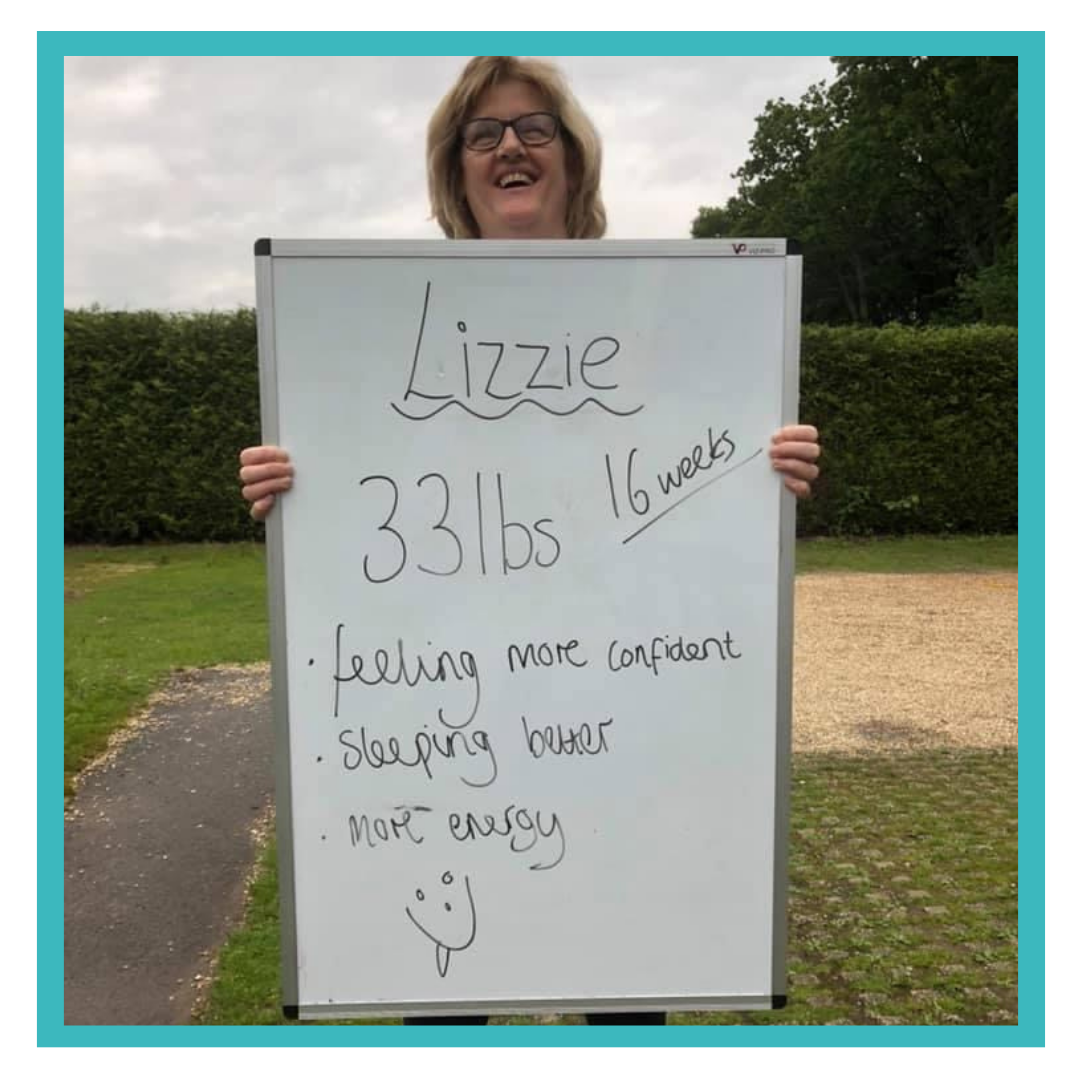 VIZ-PRO
Lizzie
33lbs 16 weeks
· feeling more confident
· sleeping better
· more energy